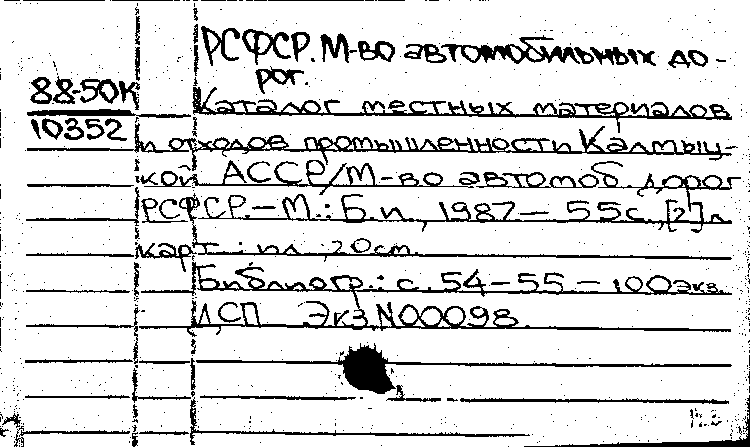 РСФСР. М-во автомобильных до-
рог.
88-50К
10352
Каталог местных материалов
и отходов промышленности Калмыц-
кой АССР/М-во автомоб. дорог
РСФСР.—М.: Б.и., 1987— 55с.,[2]л
карт.: ил ; 20см.
Библиогр.: с. 54-55 — 100экз.
ДСП Экз.N00098.